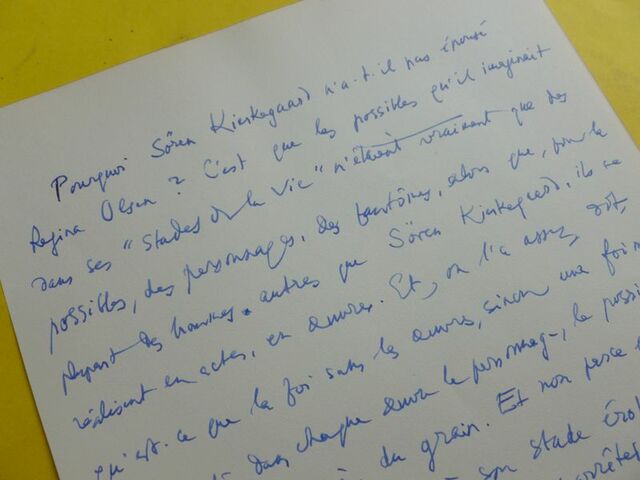 Pourquoi Sören Kierkegaard n'a-t-il pas épousé
Regina Olsen ? C'est que les possibles qu'il imaginait
dans ses "Stades de la vie" n'étaient vraiment que des
possibles, des personnages, des fantômes, alors que, pour la
plupart des hommes autres que Sören Kierkegaard, ils se
réalisent en actes, en œuvres. Et, on l'a assez dit,
qu'est-ce que la foi sans les œuvres, sinon une foi
dans chaque œuvre le personnage, le
du grain. Et non
son stade